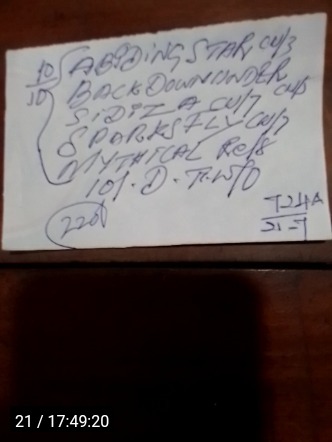 10/10 ABIDING STAR CW/3
BACK DOWN UNDER CW/5
SIDIZA CW/7
SPARKS FLY CW/7
MYTHICAL RC/8
101.D.T.W/P
220
T24A
21-7
21 / 17:49:20